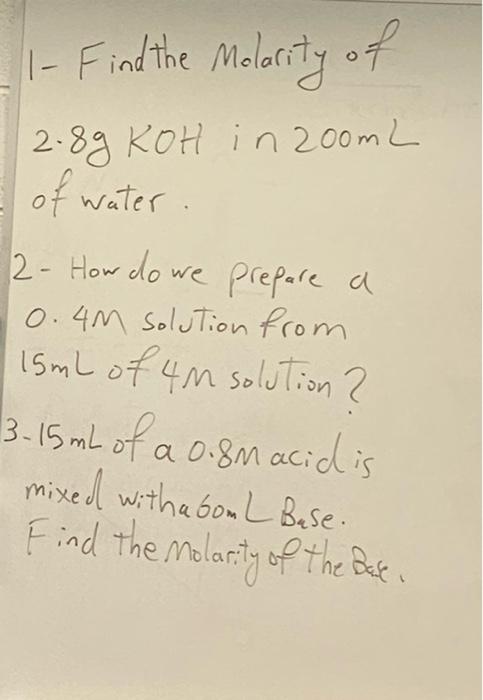 1- Find the Molarity of
2.8g KOH in 200mL
of water.
2- How do we prepare a
0.4M solution from
15mL of 4M solution?
3-15mL of a 0.8M acid is
mixed with a 60mL Base.
Find the Molarity of the Base.